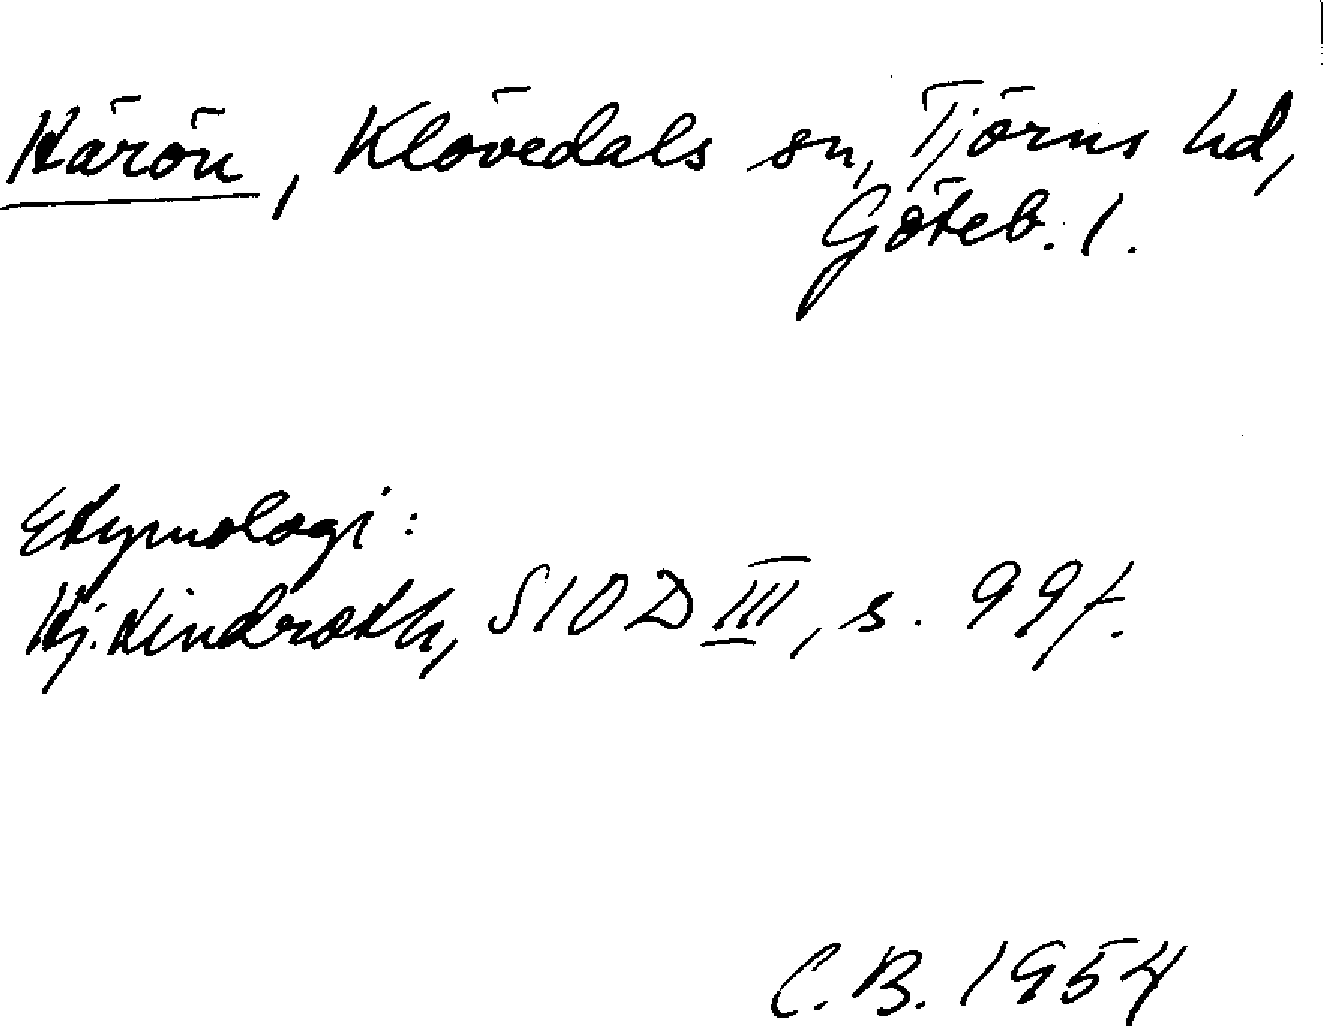 Härön, Klövedals sn, Tjörns hd,
Göteb. l.
Etymologi:
Hj. Lindroth, SIOD III, s. 99f.
C.B. 1954